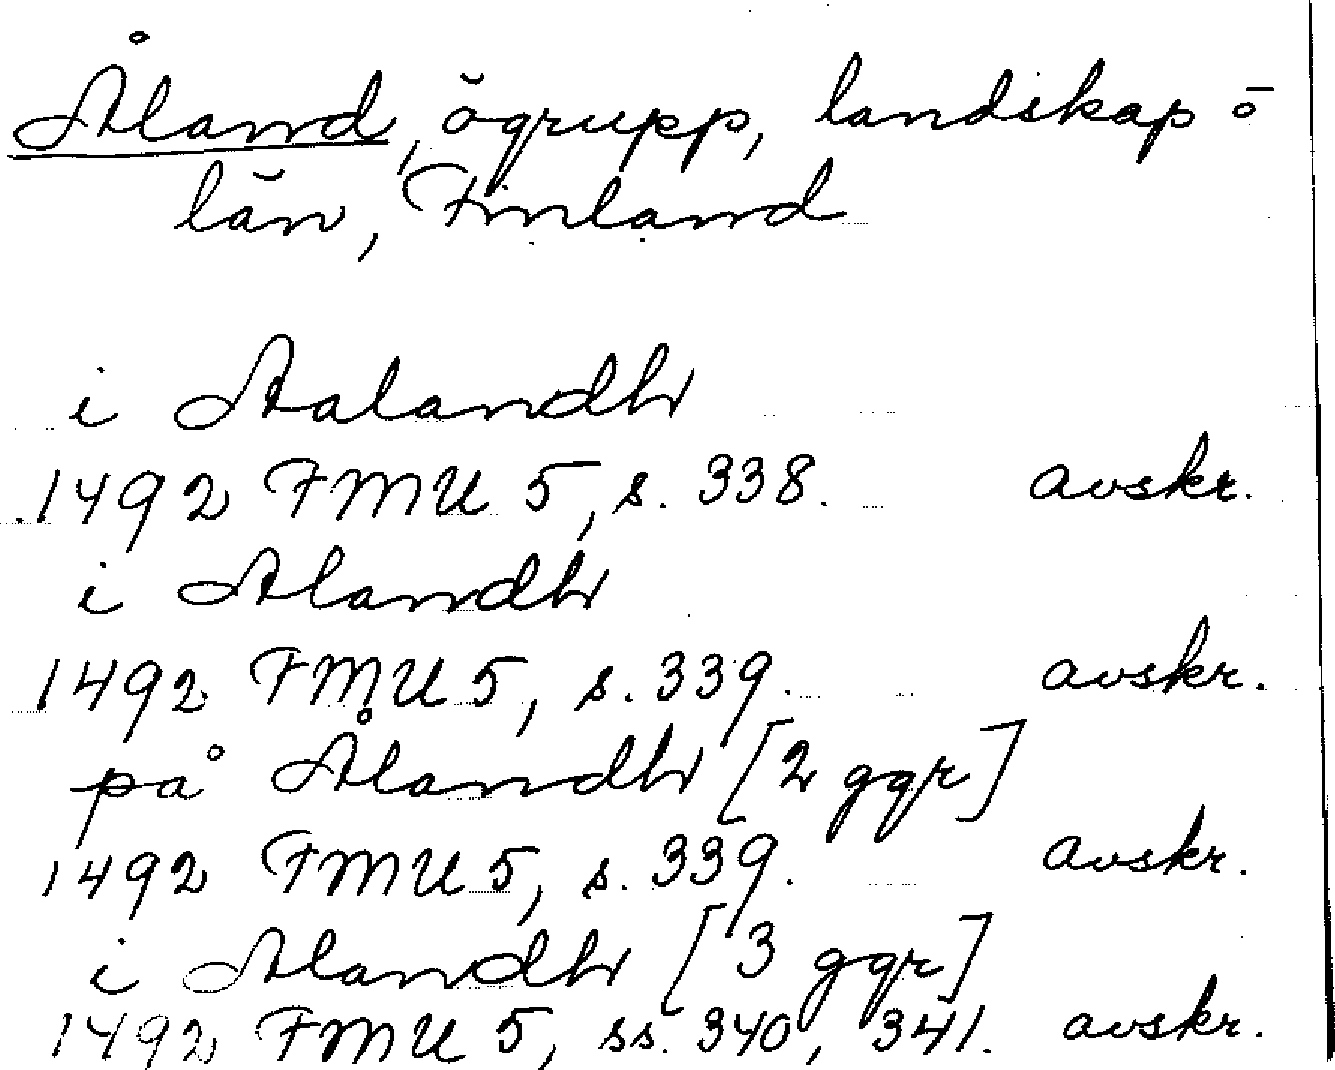 Åland, ögrupp, landskap o
län, Finland
i Aalandh
1492 FMU 5, s. 338. avskr.
i Alandh
1492 FMU 5, s. 339. avskr.
på Ålandh [2 ggr]
1492 FMU 5, s. 339. avskr.
i Alandh [3 ggr]
1492 FMU 5, ss. 340, 341. avskr.